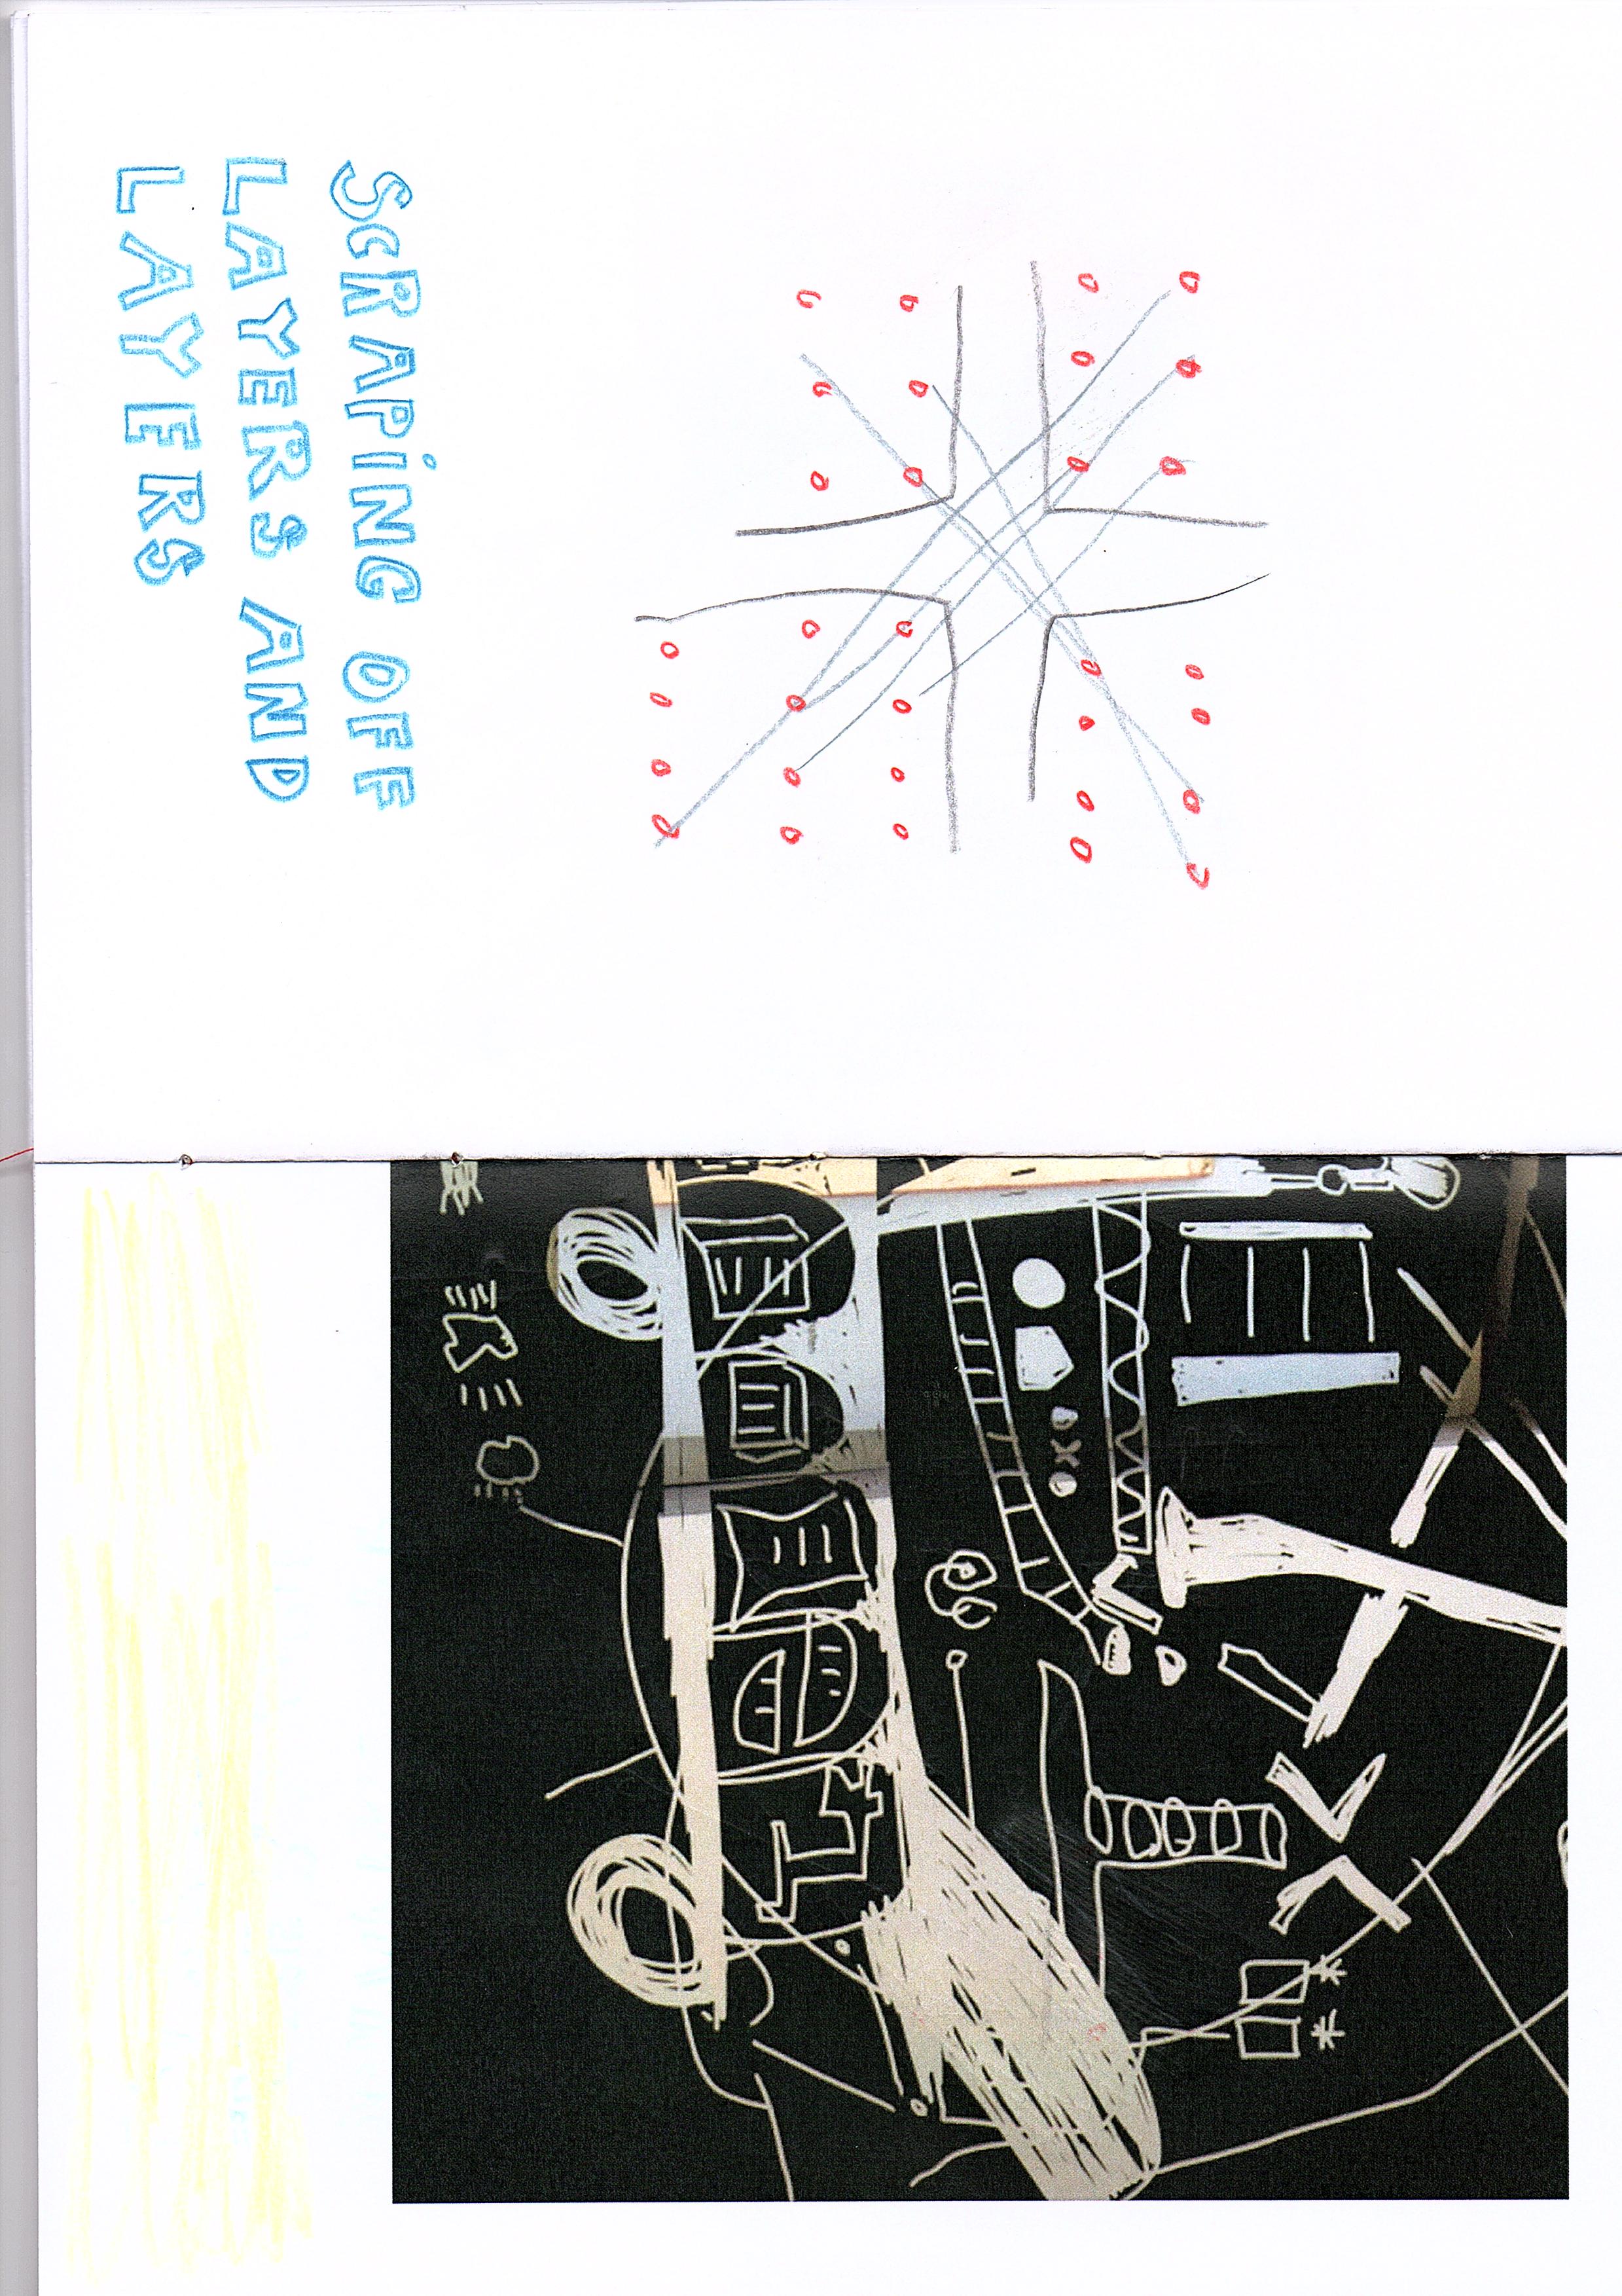 SCRAPiNG OFF
LAYERS AND
LAYERS